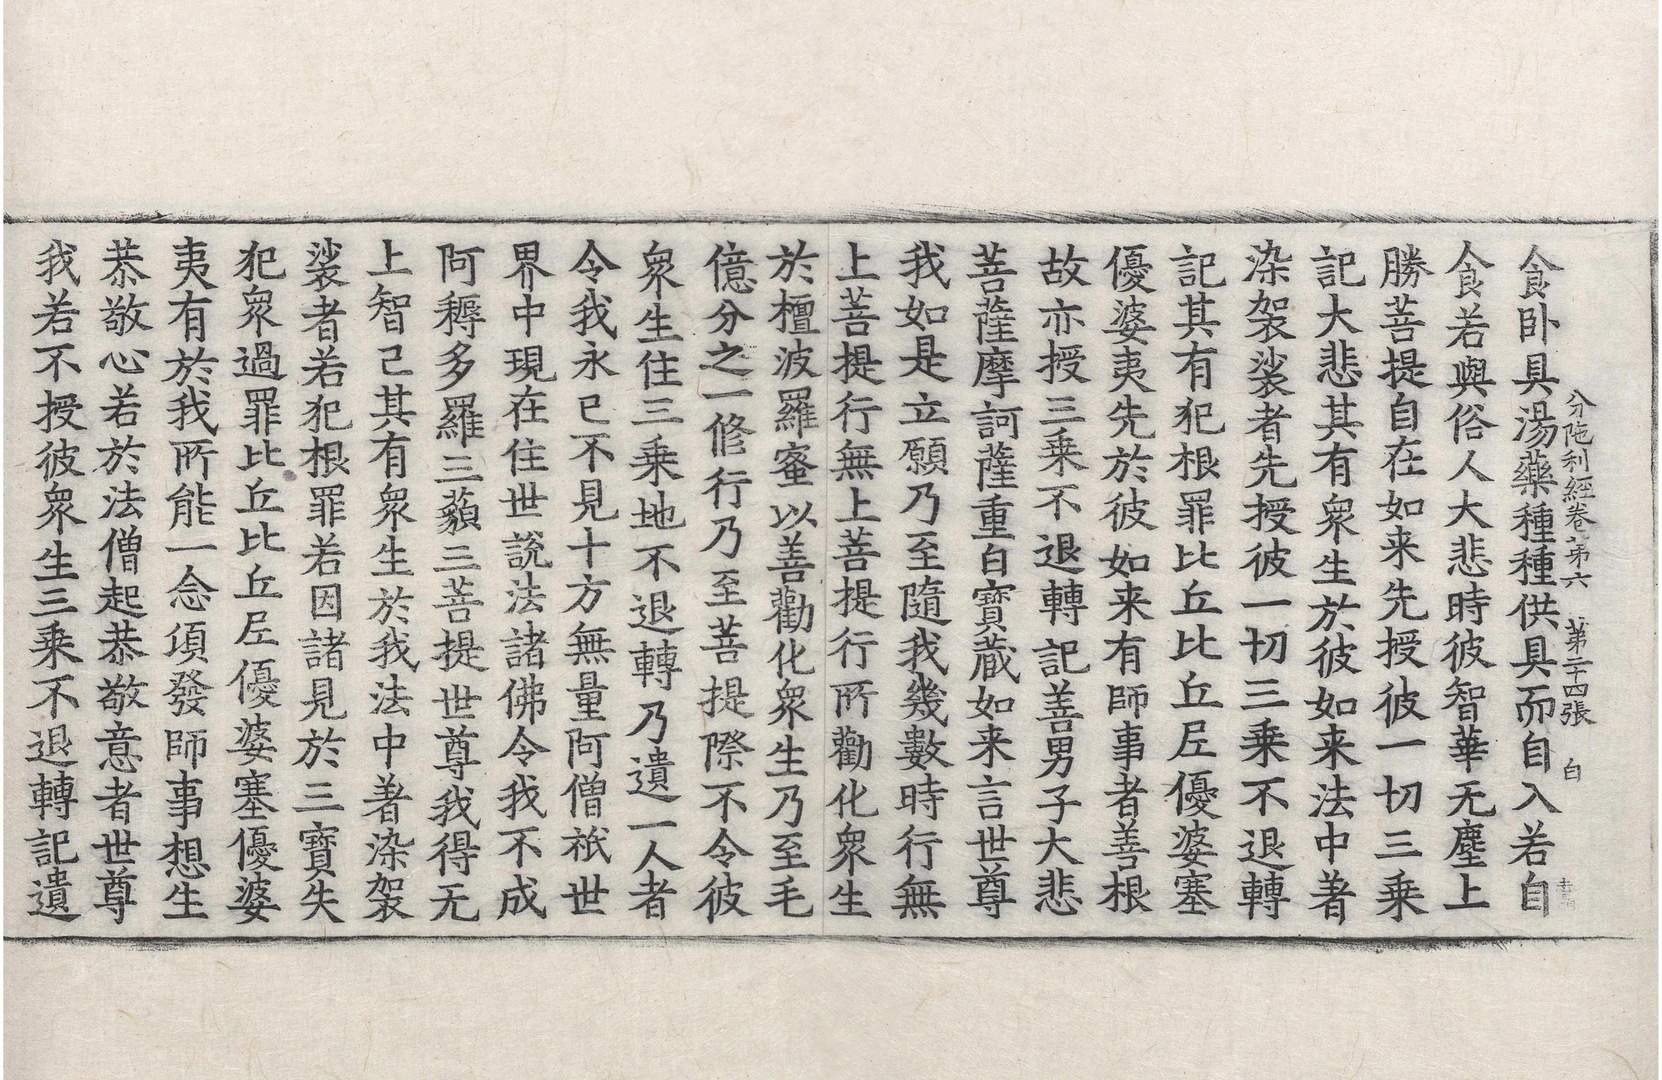 分陁利經卷第六　第二十四張　白
食卧具湯藥種種供具而自入若自
食若與俗人大悲時彼智華无塵上
勝菩提自在如来先授彼一切三乗
記大悲其有衆生於彼如来法中著
染袈裟者先授彼一切三乗不退轉
記其有犯根罪比丘比丘尼優婆塞
優婆夷先於彼如来有師事者善根
故亦授三乗不退轉記善男子大悲
菩薩摩訶薩重白寶蔵如来言世尊
我如是立願乃至隨我幾數時行無
上菩提行無上菩提行所勸化衆生
於檀波羅蜜以善勸化衆生乃至毛
億分之一修行乃至菩提際不令彼
衆生住三乗地不退轉乃遺一人者
令我永已不見十方無量阿僧祇世
界中現在住世說法諸佛令我不成
阿耨多羅三藐三菩提世尊我得无
上智已其有衆生於我法中著染袈
裟者若犯根罪若因諸見於三寶失
犯衆過罪比丘比丘尼優婆塞優婆
夷有於我所能一念項發師事想生
恭敬心若於法僧起恭敬意者世尊
我若不授彼衆生三乗不退轉記遺